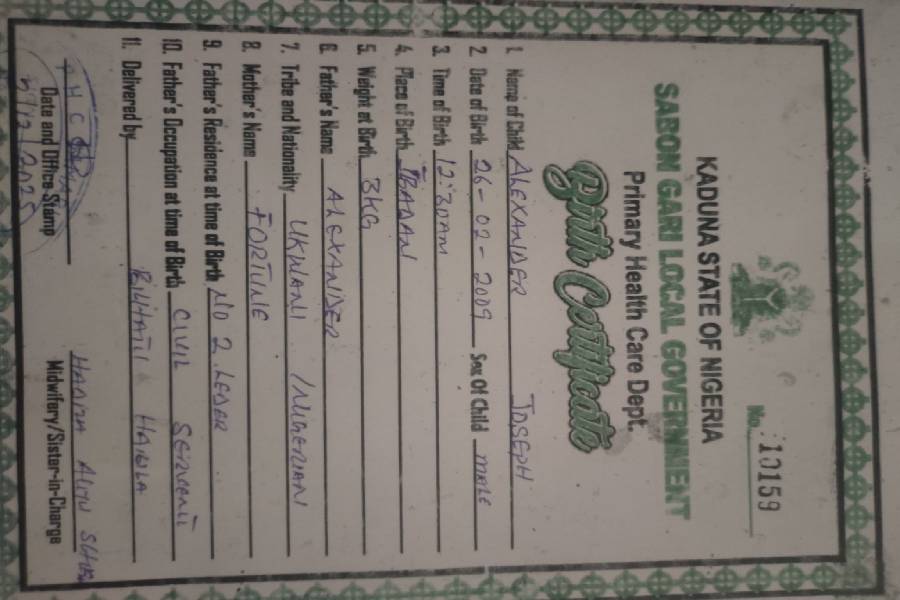 No. 10159
KADUNA STATE OF NIGERIA
SABON GARI LOCAL GOVERNMENT
Primary Health Care Dept.
Birth Certificate
1. Name of Child ALEXANDER JOSEPH
2. Date of Birth 26-02-2009 Sex Of Child male
3. Time of Birth 12:30AM
4. Place of Birth IBADAN
5. Weight at Birth 3KG
6. Father's Name ALEXANDER
7. Tribe and Nationality UKWANI / NIGERIAN
8. Mother's Name FORTUNE
9. Father's Residence at time of Birth NO 2. LEDER
10. Father's Occupation at time of Birth CIVIL SERVANT
11. Delivered by
Date and Office Stamp
Midwifery/Sister-in-Charge